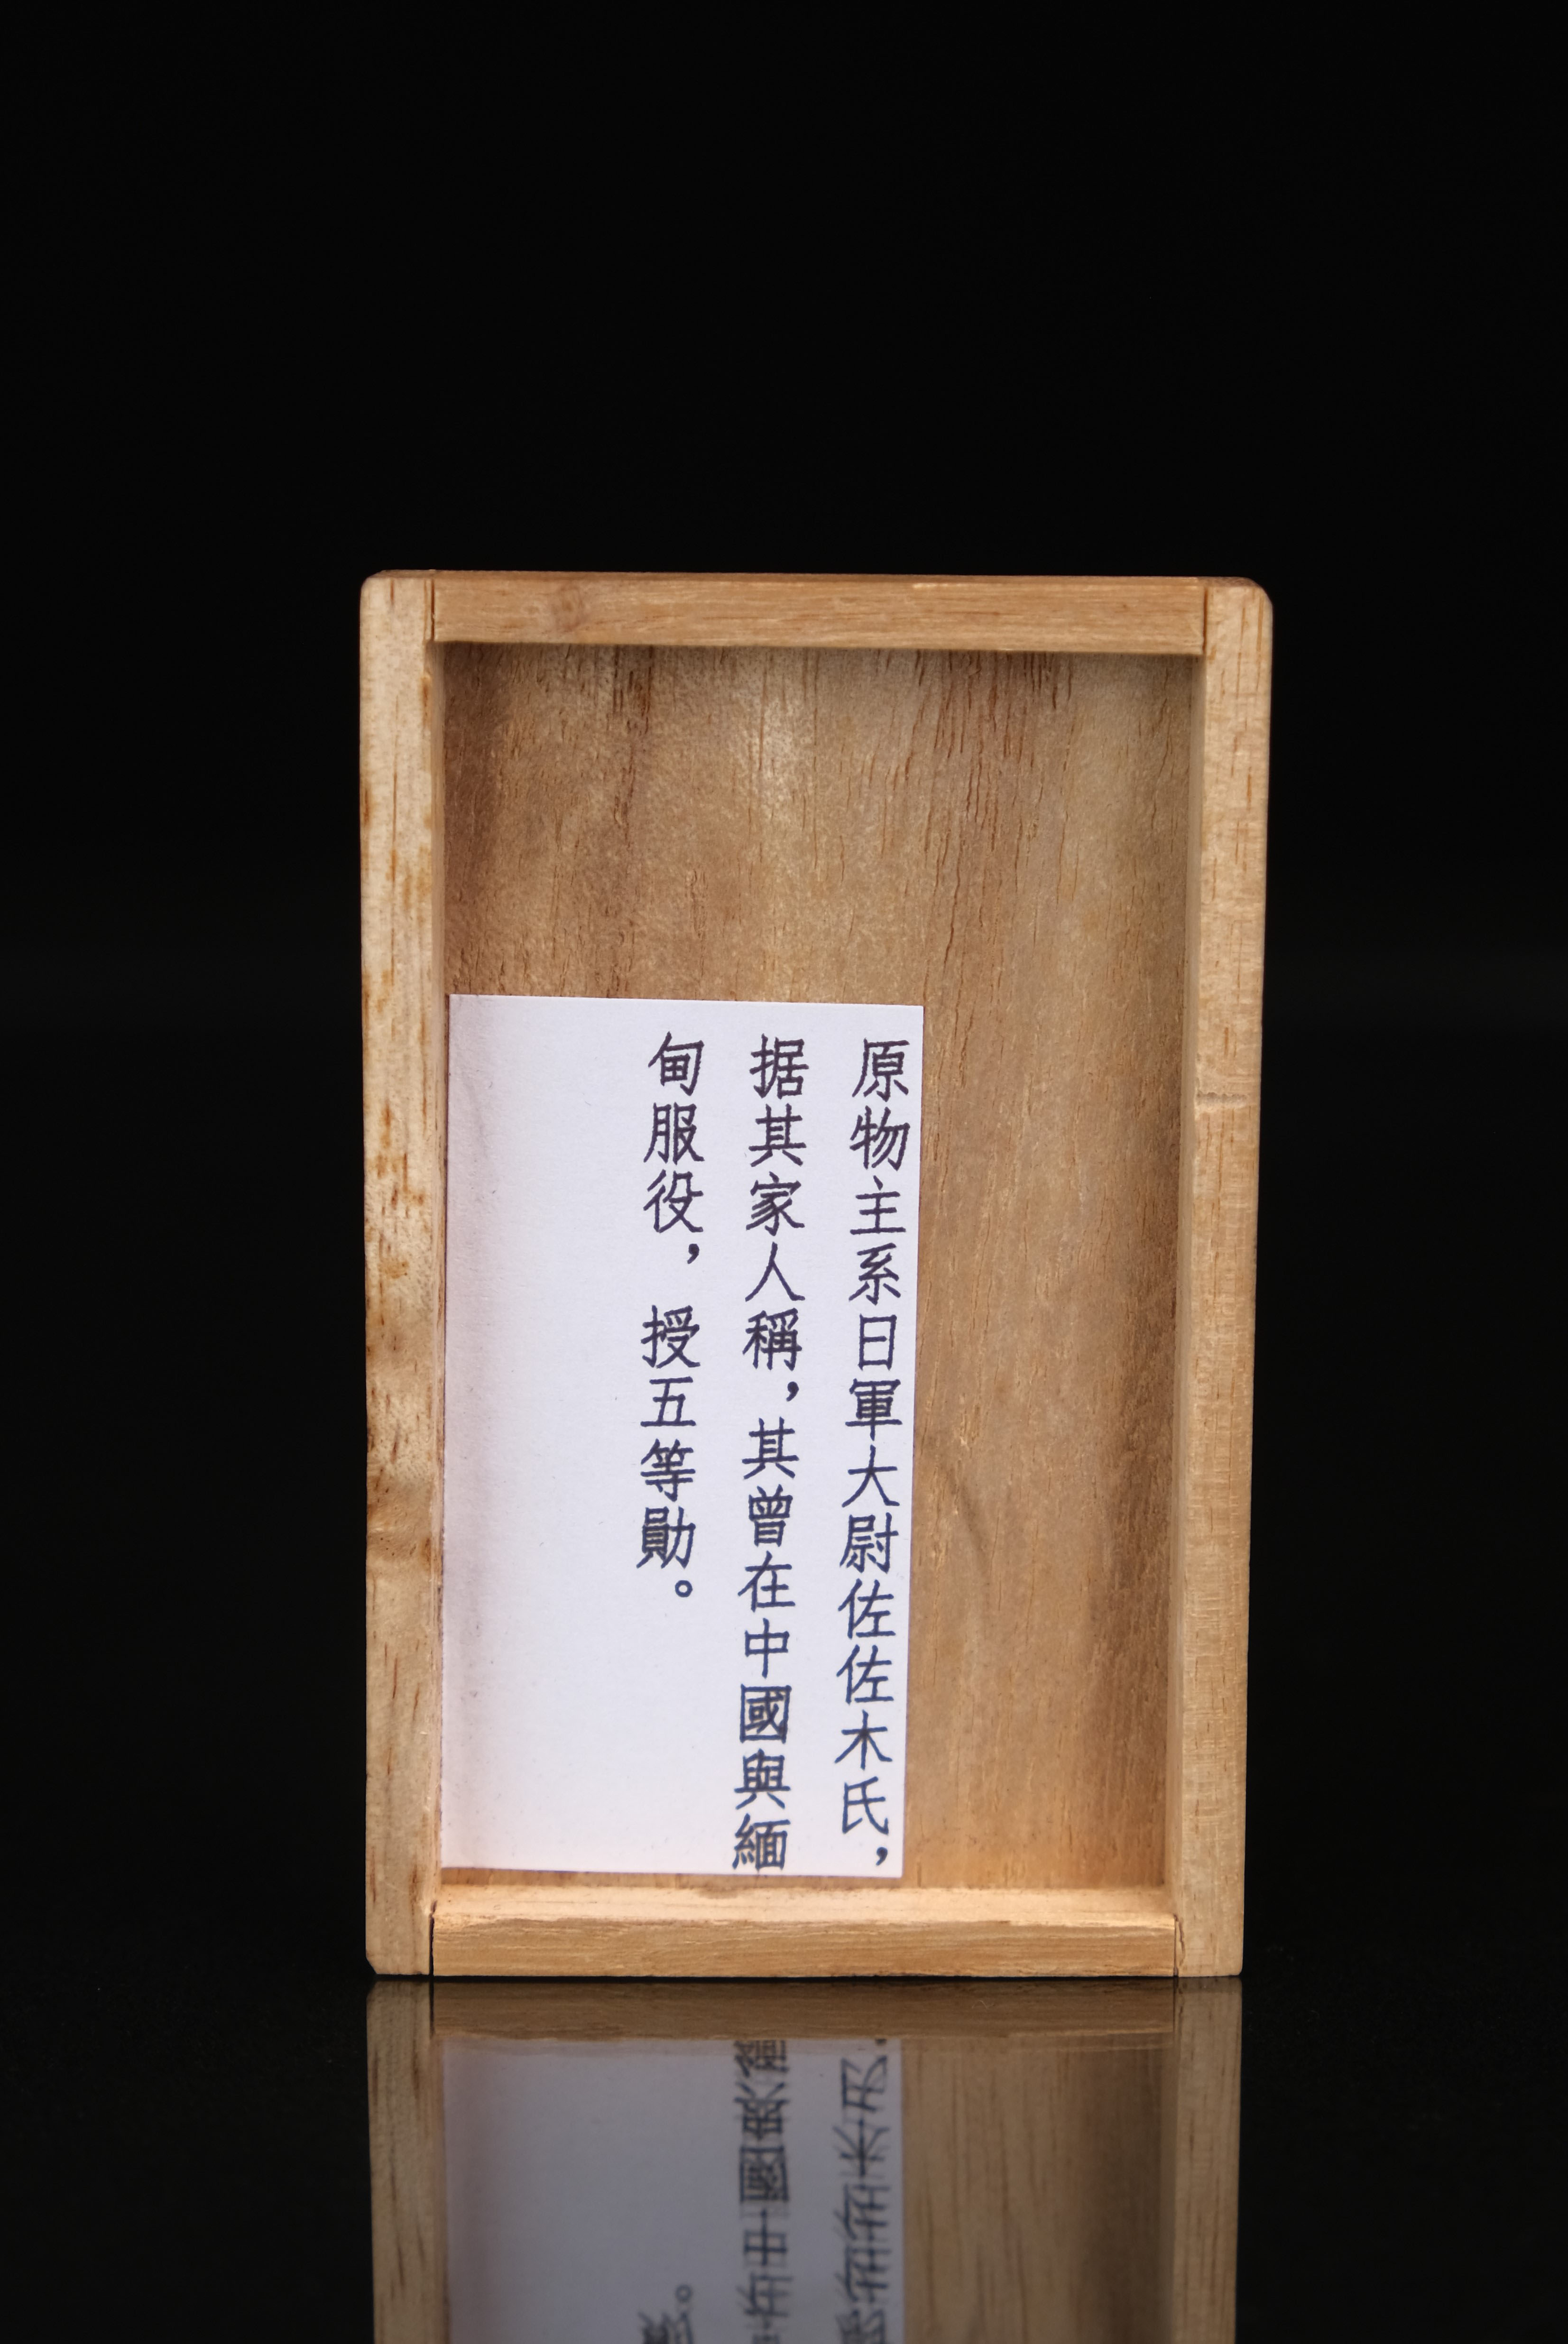 原物主系日軍大尉佐佐木氏，
据其家人稱，其曾在中國與緬
甸服役，授五等勛。